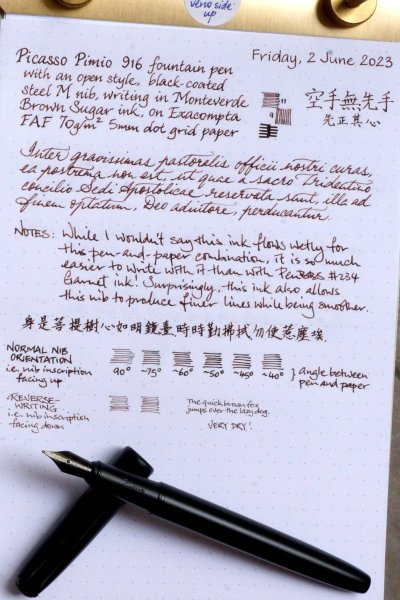 verso side
up
Friday, 2 June 2023
Picasso Pimio 916 fountain pen
with an open style, black-coated
steel M nib, writing in Monteverde
Brown Sugar ink, on Exacompta
FAF 70g/m² 5mm dot grid paper
空手無先手
先正其心
Inter gravissimas pastoralis officii nostri curas,
ea postrema non est, ut quae a sacro Tridentino
concilio Sedi Apostolicae reservata sunt, illa ad
finem optatum, Deo adiutore, perducantur.
NOTES: While I wouldn't say this ink flows wetly for
this pen-and-paper combination, it is so much
easier to write with it than with PenBBS #234
Garnet ink! Surprisingly, this ink also allows
this nib to produce finer lines while being smoother.
身是菩提樹心如明鏡臺時時勤拂拭勿使惹塵埃
NORMAL NIB
ORIENTATION
i.e. nib inscription
facing up
90° ~75° ~60° ~50° ~45° ~40°
} angle between
pen and paper
REVERSE-
WRITING
i.e. nib inscription
facing down
The quick brown fox
jumps over the lazy dog.
VERY DRY!